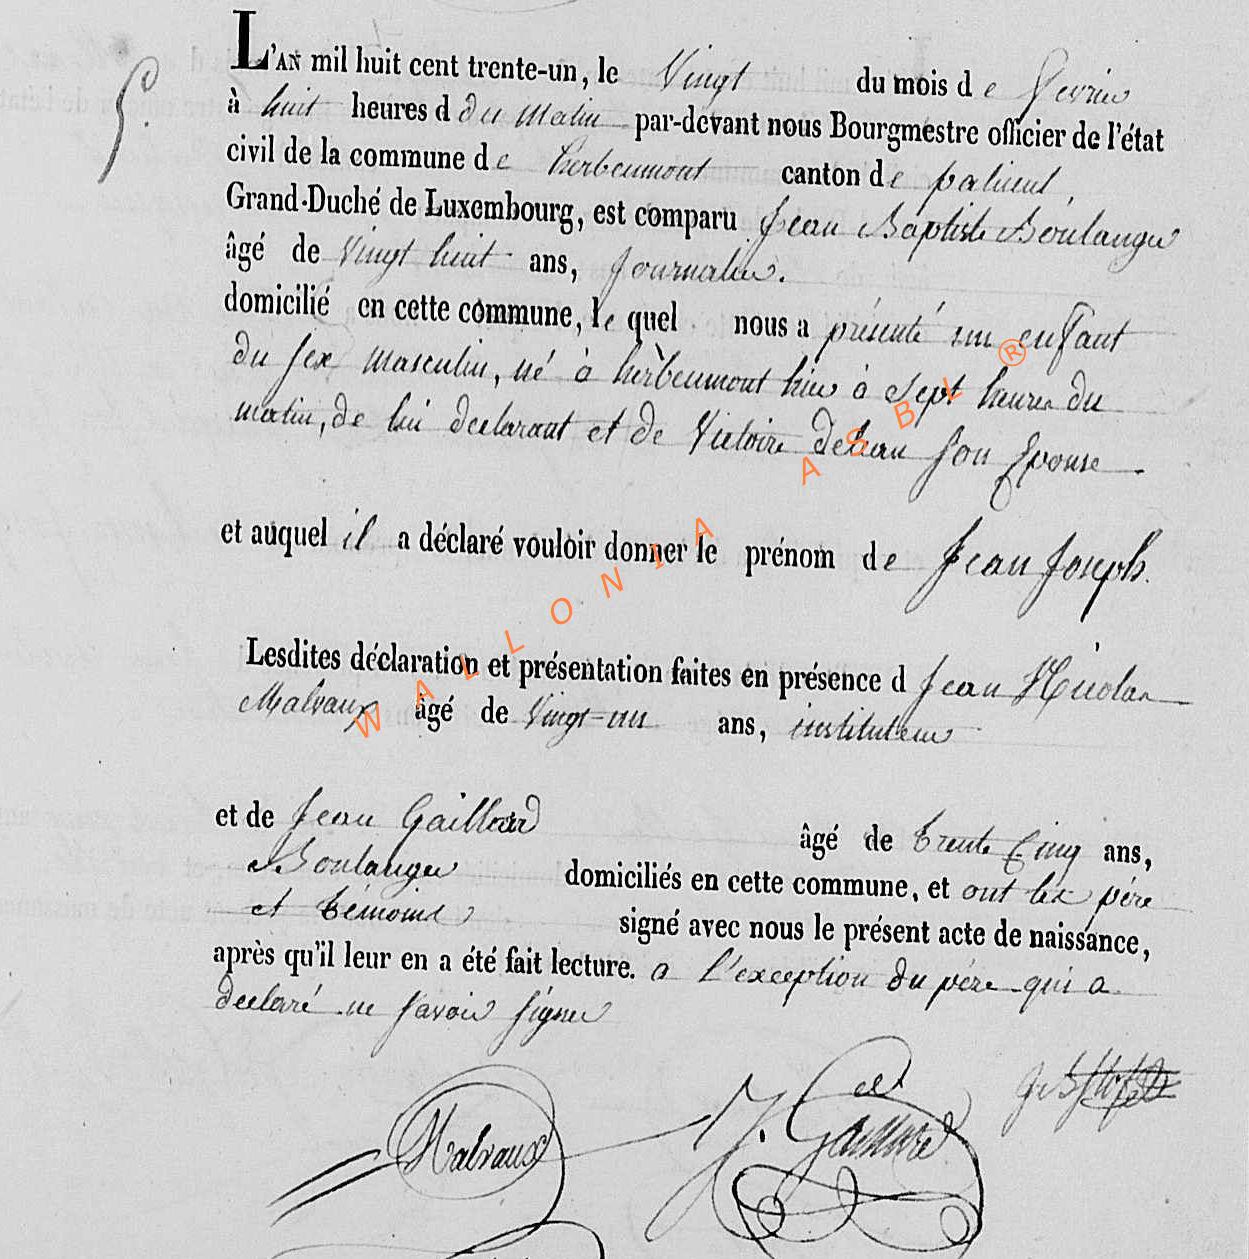 5.
L'AN mil huit cent trente-un, le Vingt du mois de fevrier
à huit heures d du matin par-devant nous Bourgmestre officier de l'état
civil de la commune de herbeumont canton de paliseul
Grand-Duché de Luxembourg, est comparu Jean Baptiste Boulanger
âgé de Vingt huit ans, Journalier.
domicilié en cette commune, le quel nous a présenté un enfant
du sex masculin, né à herbeumont hier à Sept heures du
matin, de lui declarant et de Victoire son Epouse
et auquel il a déclaré vouloir donner le prénom de Jean Joseph.
Lesdites déclaration et présentation faites en présence d Jean Nicolas
Malvaux âgé de Vingt-un ans, instituteur
et de Jean Gaillard âgé de trente Cinq ans,
Boulanger domiciliés en cette commune, et ont les père
et témoins signé avec nous le présent acte de naissance,
après qu'il leur en a été fait lecture. a l'exception du père qui a
declaré ne savoir signer
Malvaux J. Gaillard
WALLONIA ASBL ®